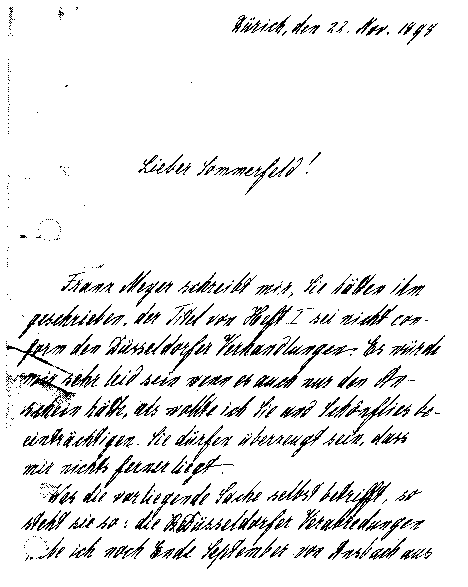 Zürich, den 22. Nov. 1898
Lieber Sommerfeld!
Franz Meyer schreibt mir, Sie hätten ihm
geschrieben, der Titel von Heft I sei nicht con-
form den Düsseldorfer Verhandlungen. Es würde
mir sehr leid sein wenn es auch nur den An-
schein hätte, als wollte ich Sie und Schönflies be-
einträchtigen. Sie dürfen überzeugt sein, dass
mir nichts ferner liegt.
Was die vorliegende Sache selbst betrifft, so
steht sie so: die Düsseldorfer Verabredungen
be ich noch Ende September von Ansbach aus